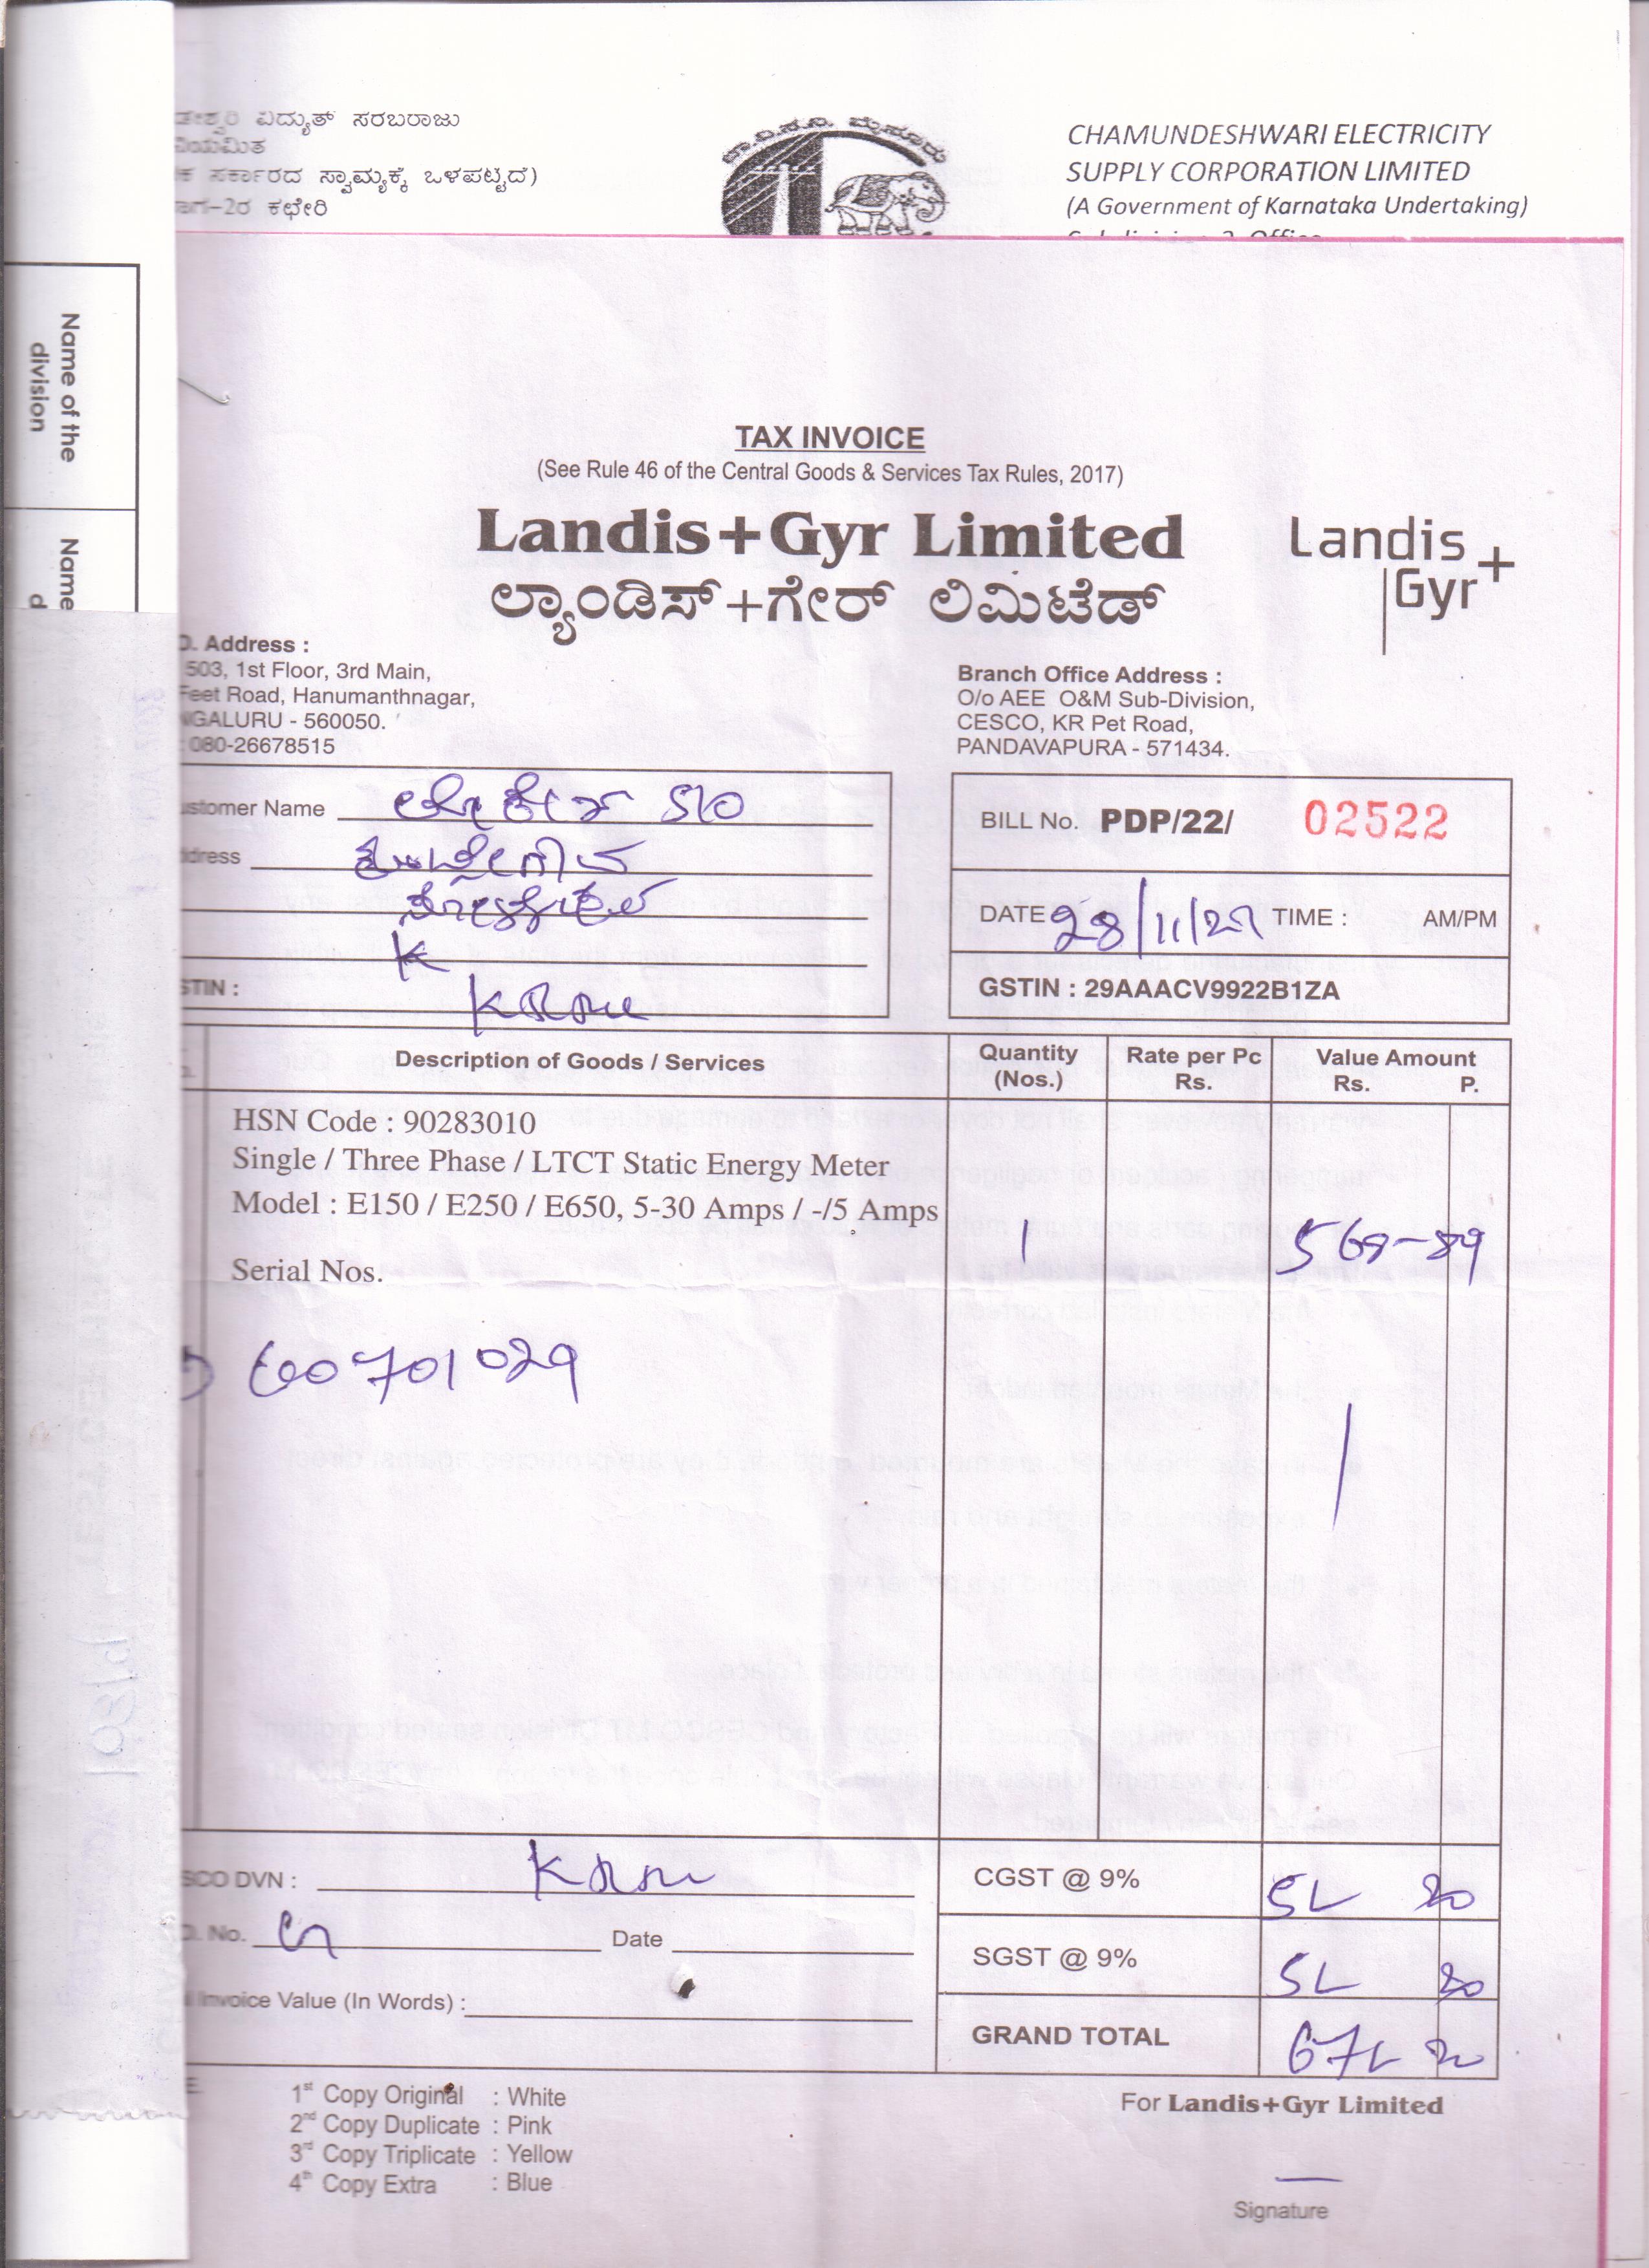 ವಿದ್ಯುತ್ ಸರಬರಾಜು
ನಿಯಮಿತ
ಕ ಸರ್ಕಾರದ ಸ್ವಾಮ್ಯಕ್ಕೆ ಒಳಪಟ್ಟಿದೆ)
ಾಗ-2ರ ಕಛೇರಿ
CHAMUNDESHWARI ELECTRICITY
SUPPLY CORPORATION LIMITED
(A Government of Karnataka Undertaking)
Name of the
division
Name
d
TAX INVOICE
(See Rule 46 of the Central Goods & Services Tax Rules, 2017)
Landis+Gyr Limited
ಲ್ಯಾಂಡಿಸ್+ಗೇರ್ ಲಿಮಿಟೆಡ್
Landis
Gyr+
O. Address :
503, 1st Floor, 3rd Main,
Feet Road, Hanumanthnagar,
NGALURU - 560050.
: 080-26678515
Branch Office Address :
O/o AEE O&M Sub-Division,
CESCO, KR Pet Road,
PANDAVAPURA - 571434.
ustomer Name S/O
ddress
K
STIN :
BILL No. PDP/22/ 02522
DATE 28/11/ TIME : AM/PM
GSTIN : 29AAACV9922B1ZA
Description of Goods / Services
Quantity
(Nos.)
Rate per Pc
Rs.
Value Amount
Rs. P.
HSN Code : 90283010
Single / Three Phase / LTCT Static Energy Meter
Model : E150 / E250 / E650, 5-30 Amps / -/5 Amps
1
Serial Nos.
600701029
SCO DVN :
CGST @ 9%
O. No. Date
SGST @ 9%
l Invoice Value (In Words) :
GRAND TOTAL
1st Copy Original : White
2nd Copy Duplicate : Pink
3rd Copy Triplicate : Yellow
4th Copy Extra : Blue
For Landis+Gyr Limited
Signature